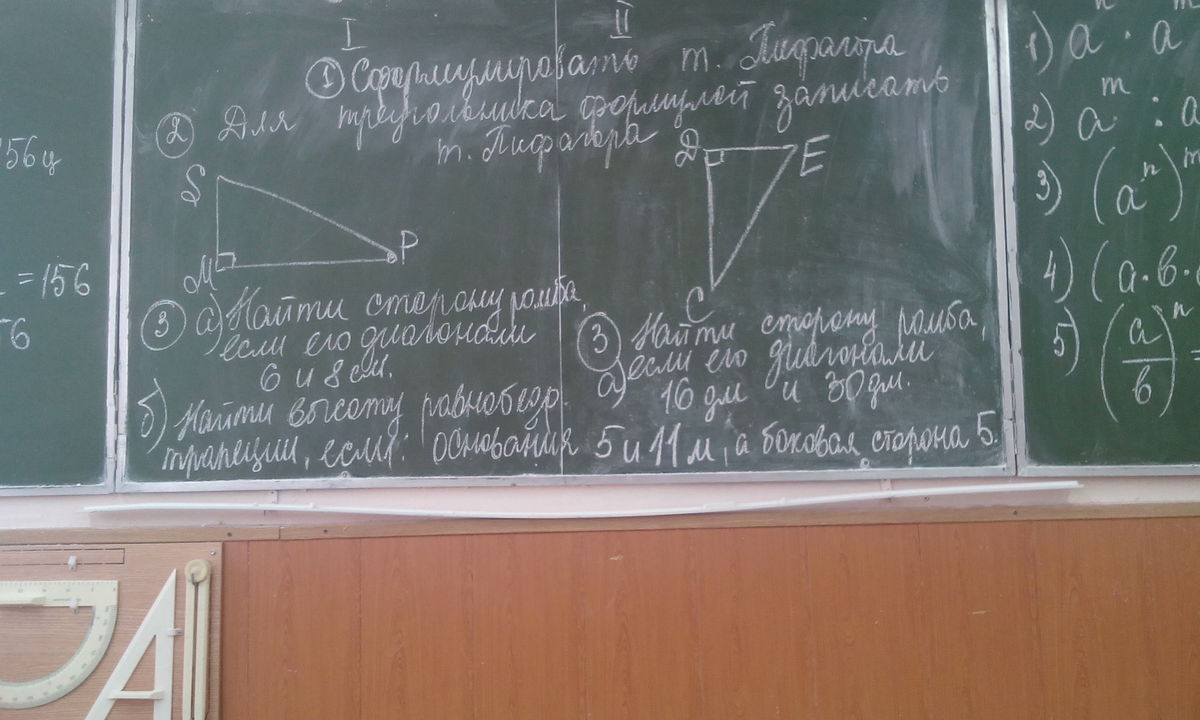 156ц
= 156
56
I
II
① Сформулировать т. Пифагора
② Для треугольника формулой записать
т. Пифагора
S
M
P
D
E
C
③ а) Найти сторону ромба,
если его диагонали
6 и 8 см.
③ Найти сторону ромба,
а) если его диагонали
16 дм и 30 дм.
б) Найти высоту равнобедр.
трапеции, если: основания 5 и 11 м, а боковая сторона 5.
1) aⁿ · aᵐ
2) aᵐ : a
3) (aⁿ)ᵐ
4) (a · b ·
5) (a/b)ⁿ =